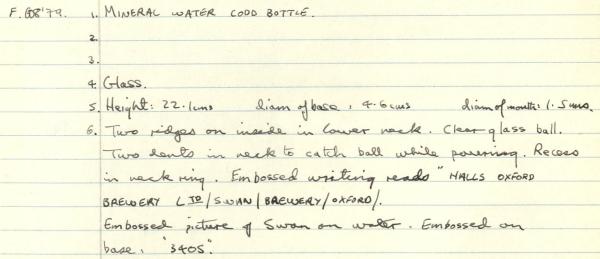 F. 608'79. 1. MINERAL WATER CODD BOTTLE.
2.
3.
4. Glass.
5. Height: 22.1cms diam of base: 4.6cms diam of mouth: 1.5cms.
6. Two ridges on inside in lower neck. Clear glass ball.
Two dents in neck to catch ball while pouring. Recess
in neck ring. Embossed writing reads "HALLS OXFORD
BREWERY LTD/SWAN/BREWERY/OXFORD/.
Embossed picture of Swan on water. Embossed on
base, "3405".